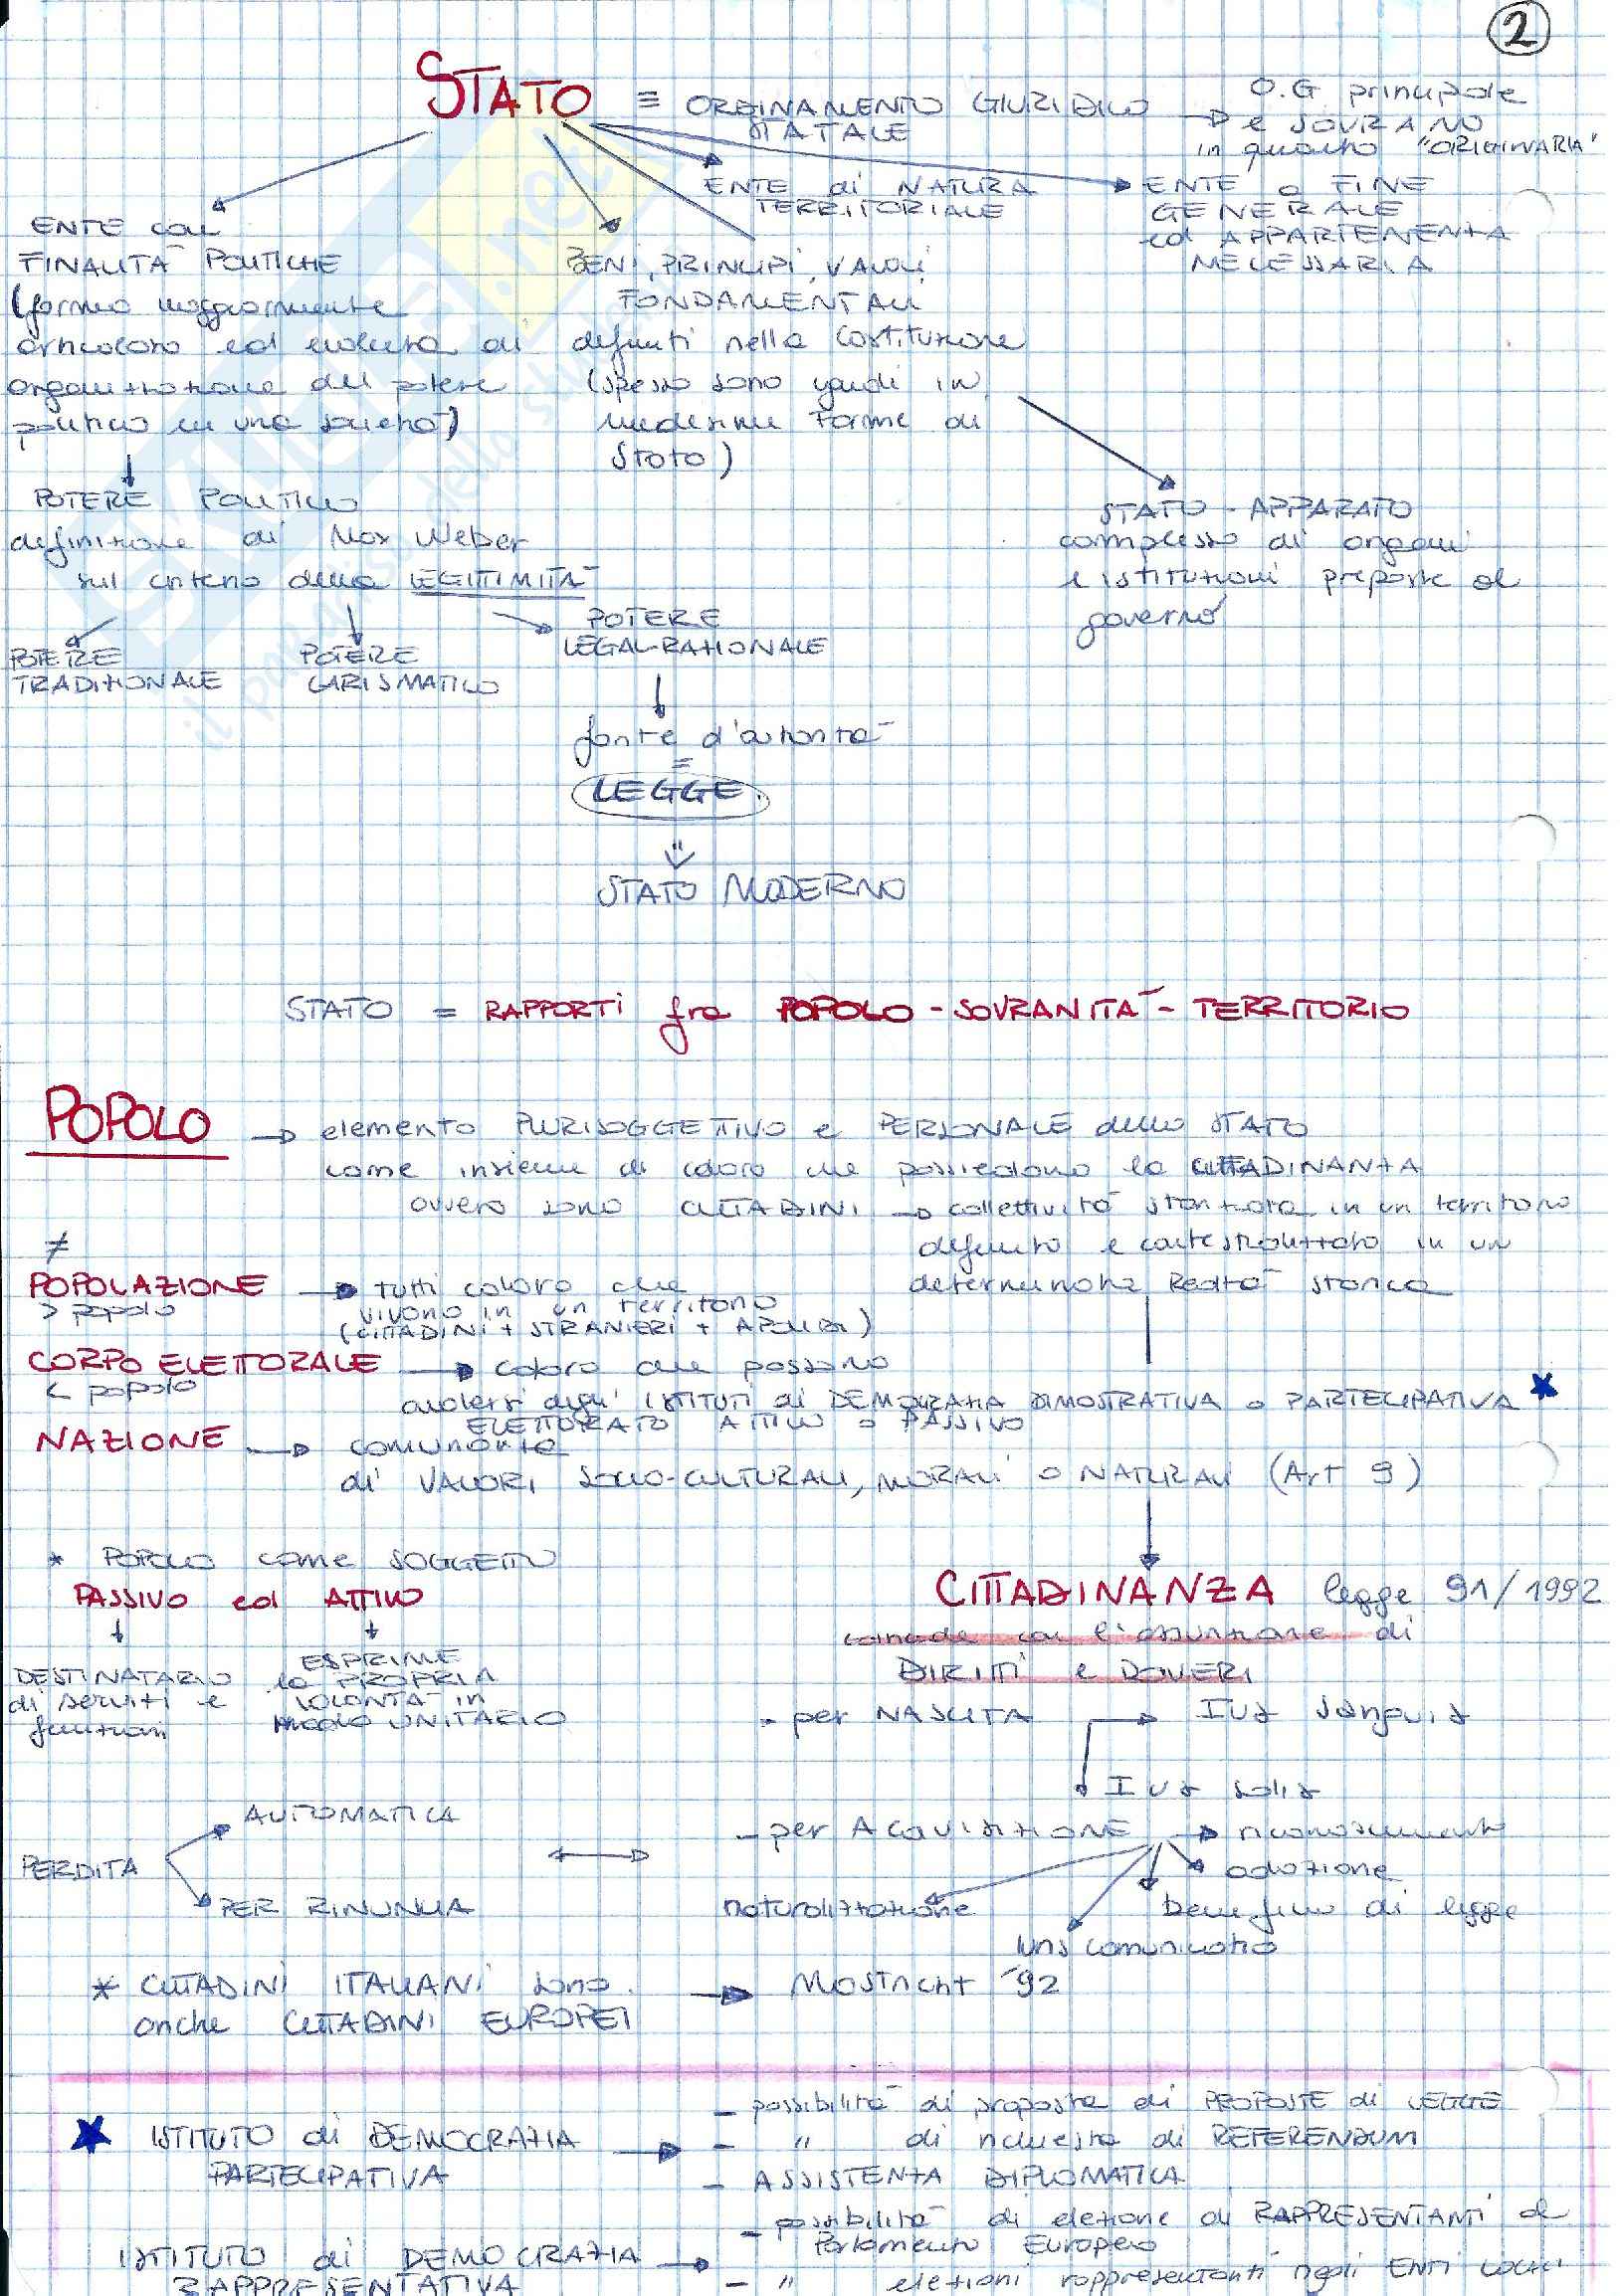 2
STATO ≡ ORDINAMENTO GIURIDICO
STATALE
→ O.G principale
e SOVRANO
in quanto "ORIGINARIA"
ENTE di NATURA
TERRITORIALE
ENTE a FINE
GENERALE
ed APPARTENENZA
NECESSARIA
ENTE con
FINALITÀ POLITICHE
(forma maggiormente
articolata ed evoluta di
organizzazione del potere
politico in una società)
BENI, PRINCIPI, VALORI
FONDAMENTALI
definiti nella Costituzione
(spesso sono uguali in
medesime Forme di
Stato)
POTERE POLITICO
definizione di Max Weber
sul criterio della LEGITTIMITÀ
STATO - APPARATO
complesso di organi
e istituzioni preposte al
governo
POTERE
TRADIZIONALE
POTERE
CARISMATICO
POTERE
LEGAL-RAZIONALE
fonte d'autorità
=
LEGGE
STATO MODERNO
STATO = RAPPORTI fra POPOLO - SOVRANITÀ - TERRITORIO
POPOLO → elemento PLURISOGGETTIVO e PERSONALE dello STATO
come insieme di coloro che possiedono la CITTADINANZA
ovvero sono CITTADINI → collettività stanziata in un territorio
definito e contestualizzato in un
determinata Realtà storica
≠
POPOLAZIONE → tutti coloro che
> popolo
vivono in un territorio
(CITTADINI + STRANIERI + APOLIDI)
CORPO ELETTORALE → coloro che possono
< popolo
avvalersi degli ISTITUTI di DEMOCRAZIA DIMOSTRATIVA o PARTECIPATIVA ★
ELETTORATO ATTIVO o PASSIVO
NAZIONE → comunanza
di VALORI SOCIO-CULTURALI, MORALI o NATURALI (Art 9)
* POPOLO come SOGGETTO
PASSIVO ed ATTIVO
DESTINATARIO
di servizi e
funzioni
ESPRIME
la PROPRIA
VOLONTÀ in
modo UNITARIO
CITTADINANZA legge 91/1992
coincide con l'assunzione di
DIRITTI e DOVERI
- per NASCITA → Ius sanguis
Ius solis
- per ACQUISIZIONE → riconoscimento
adozione
beneficio di legge
Iuris comunicatio
naturalizzazione
PERDITA
AUTOMATICA
PER RINUNCIA
* CITTADINI ITALIANI sono
anche CITTADINI EUROPEI
→ MASTRICHT '92
★ ISTITUTO di DEMOCRAZIA
PARTECIPATIVA
→ - possibilità di proposta di PROPOSTE di LEGGE
- " di richiesta di REFERENDUM
- ASSISTENZA DIPLOMATICA
- possibilità di elezione di RAPPRESENTANTI al
Parlamento Europeo
ISTITUTO di DEMOCRAZIA
RAPPRESENTATIVA
→ - " elezioni rappresentanti negli ENTI LOCALI